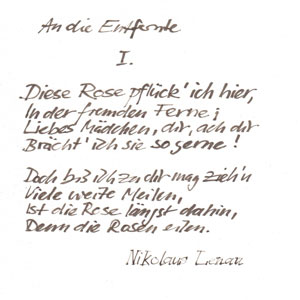 An die Entfernte
I.
Diese Rose pflück' ich hier,
In der fremden Ferne;
Liebes Mädchen, dir, ach dir
Brächt' ich sie so gerne!
Doch bis ich zu dir mag zieh'n
Viele weite Meilen,
Ist die Rose längst dahin,
Denn die Rosen eilen.
Nikolaus Lenau